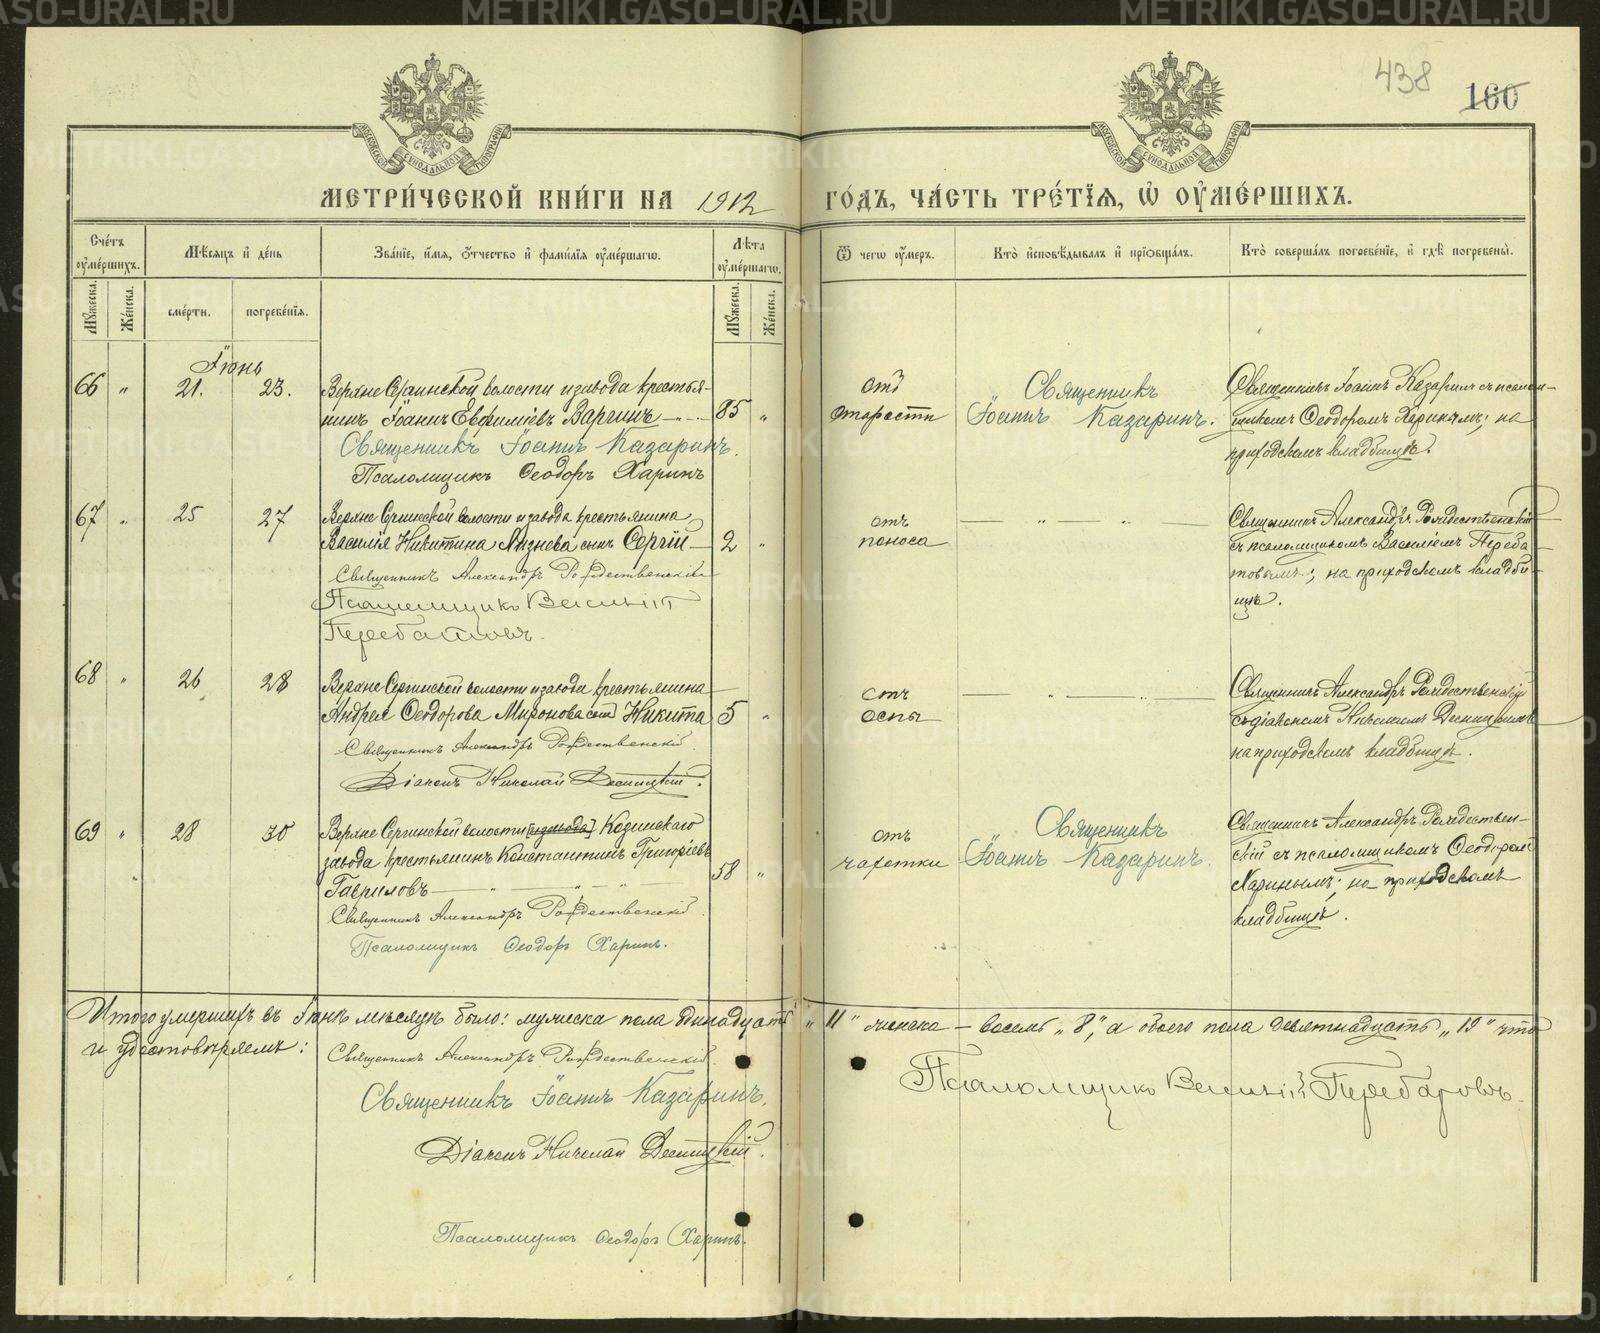 438
160
МЕТРИ́ЧЕСКОЙ КНИ́ГИ НА 1912 ГО́ДЪ, ЧА́СТЬ ТРЕ́ТІЯ, Ѡ ОУМЕ́РШИХЪ.
Сче́тъ оуме́ршихъ.
Мѣ́сяцъ и де́нь
Зва́ніе, и́мя, ѻ́тчество и фами́лія оуме́ршагѡ.
Лѣ́та оуме́ршагѡ.
Ѿ чегѡ оу́меръ.
Кто̀ исповѣ́дывалъ и пріѡбща́лъ.
Кто̀ соверша́лъ погребе́ніе, и гдѣ̀ погребены̀.
Му́жеска.
Же́нска.
сме́рти.
погребе́нія.
Му́жеска.
Же́нска.
Іюнь
66 " 21. 23.
Верхне Сергинской волости и завода крестья-
нинъ Іоаннъ Евфиміевъ Варгинъ — " —
85 "
Священникъ Іоаннъ Казаринъ.
Псаломщикъ Ѳеодоръ Харинъ
отъ
старости
Священникъ
Іоаннъ Казаринъ.
Священникъ Іоаннъ Казаринъ съ псалом-
щикомъ Ѳеодоромъ Харинымъ; на
приходскомъ кладбищѣ.
67 " 25 27
Верхне Сергинской волости и завода крестьянина
Василія Никитина сынъ Сергій —
2 "
Священникъ Александръ Рождественскій
Псаломщикъ Василій
Перебатовъ.
отъ
поноса
— " — " —
Священникъ Александръ Рождественскій
съ псаломщикомъ Василіемъ Переба-
товымъ; на приходскомъ кладби-
щѣ.
68 " 26 28
Верхне Сергинской волости и завода крестьянина
Андрея Ѳеодорова Миронова сынъ Никита
5 "
Священникъ Александръ Рождественскій
Діаконъ Николай Десницкій.
отъ
оспы
— " — " —
Священникъ Александръ Рождественскій
съ діакономъ Николаемъ Десницкимъ
на приходскомъ кладбищѣ.
69 " 28 30
Верхне Сергинской волости (и завода) Козинскаго
завода крестьянинъ Константинъ Григоріевъ
Гавриловъ — " — " — " —
58 "
Священникъ Александръ Рождественскій
Псаломщикъ Ѳеодоръ Харинъ.
отъ
чахотки
Священникъ
Іоаннъ Казаринъ.
Священникъ Александръ Рождествен-
скій съ псаломщикомъ Ѳеодоромъ
Харинымъ; на приходскомъ
кладбищѣ.
Итого умершихъ въ Іюнѣ мѣсяцѣ было: мужеска пола одинадцать "11" женска — восемь "8", а обоего пола девятнадцать "19" что
и удостовѣряемъ:
Священникъ Александръ Рождественскій.
Священникъ Іоаннъ Казаринъ.
Діаконъ Николай Десницкій.
Псаломщикъ Ѳеодоръ Харинъ.
Псаломщикъ Василій Перебатовъ.
METRIKI.GASO-URAL.RU